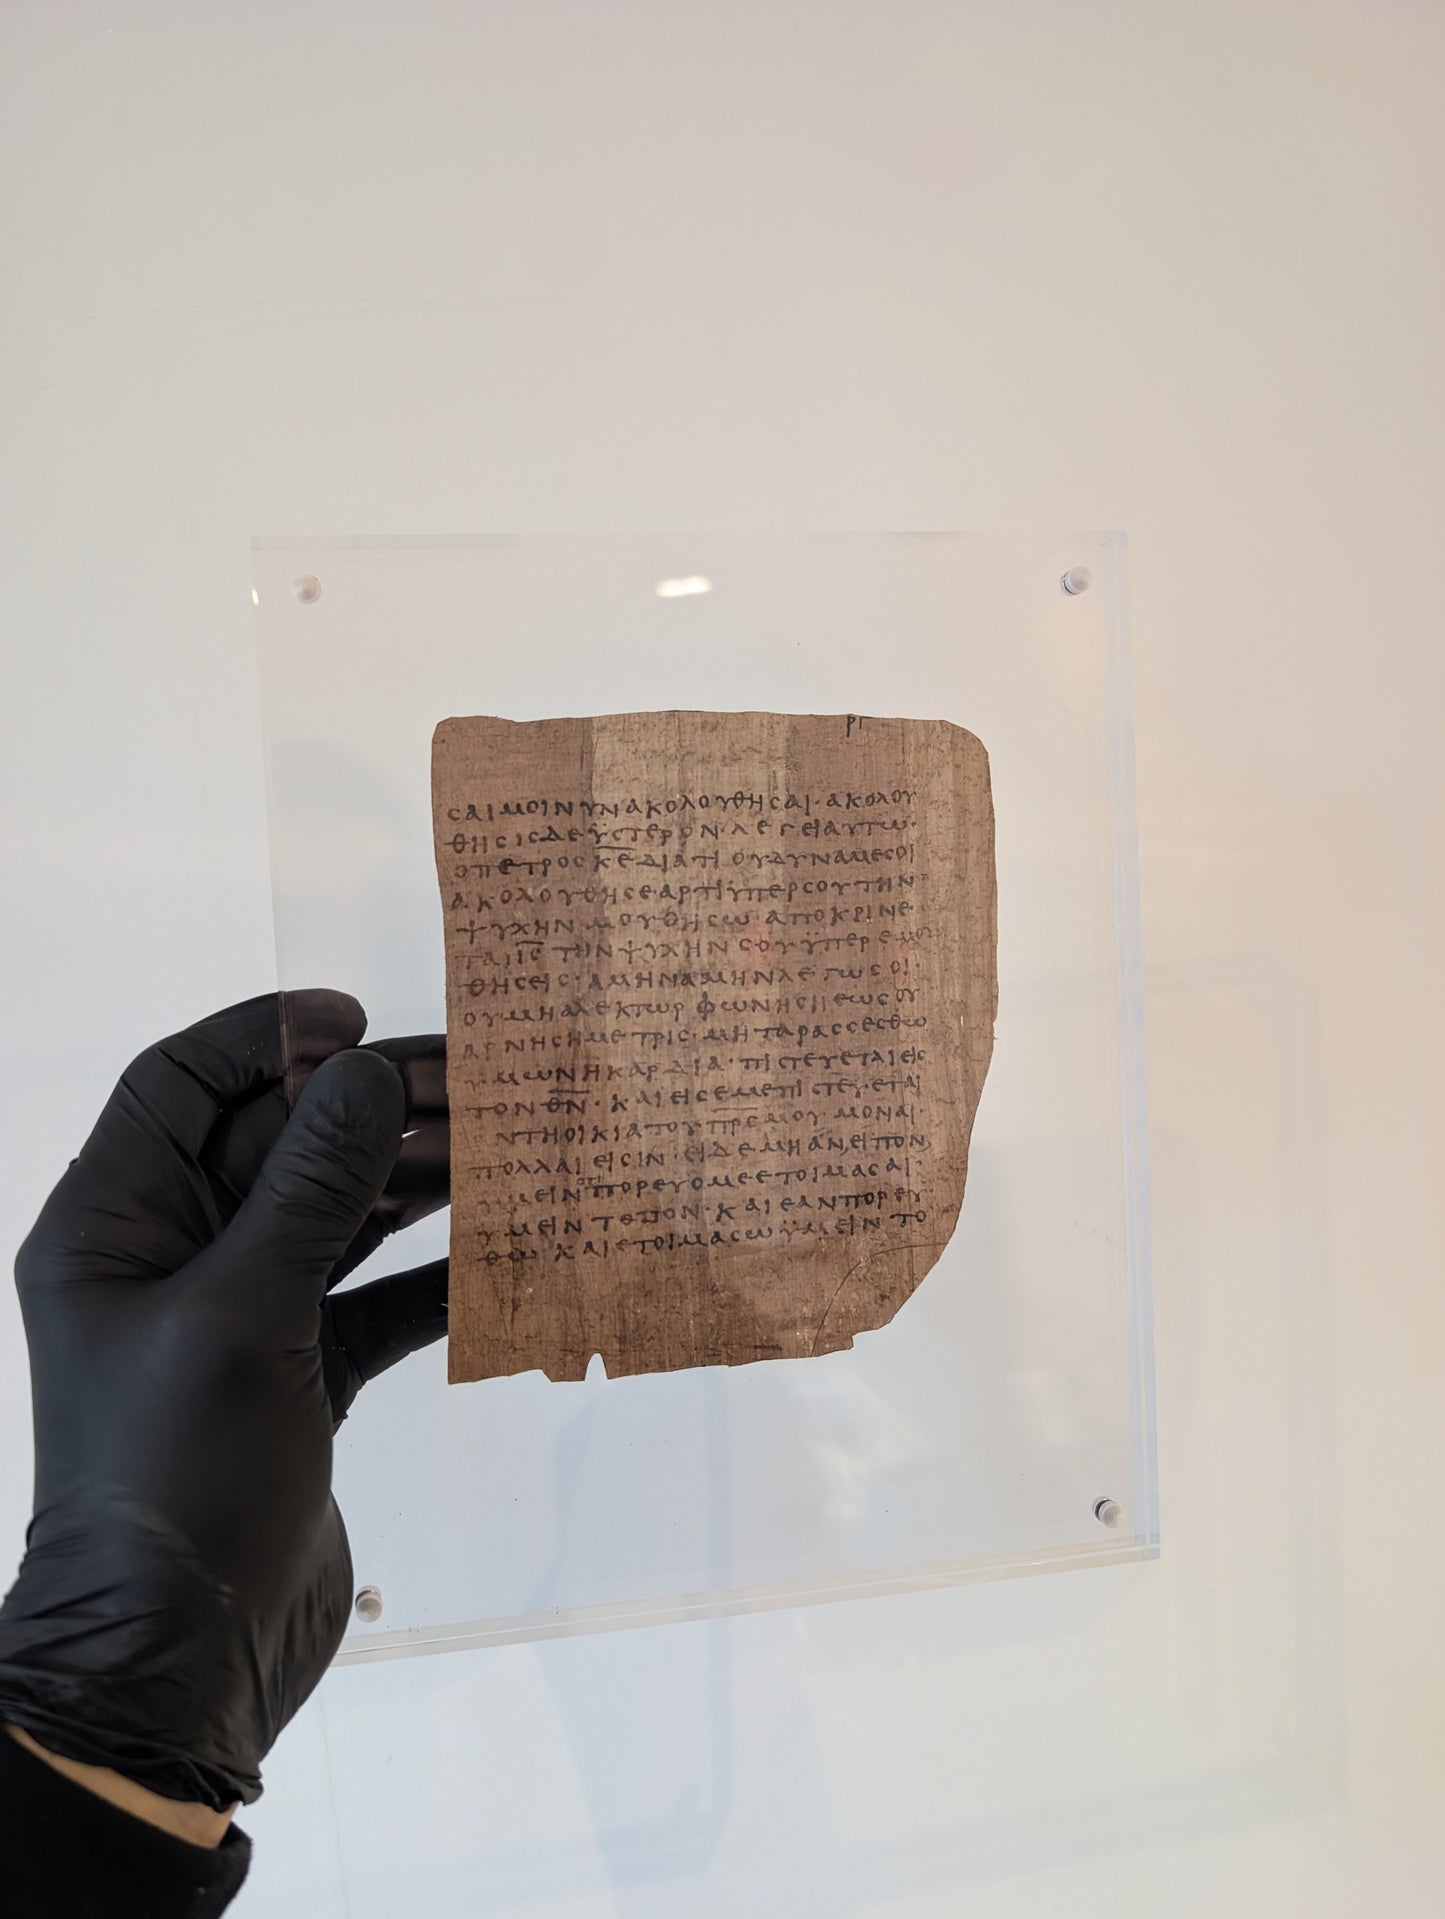 ΡΓ
ϹΑΙ ΜΟΙ ΝΥΝ ΑΚΟΛΟΥΘΗϹΑΙ· ΑΚΟΛΟΥ
ΘΗϹΙϹ ΔΕ ΫϹΤΕΡΟΝ· ΛΕΓΕΙ ΑΥΤΩ·
Ο ΠΕΤΡΟϹ Κ̅Ε̅ ΔΙΑ ΤΙ ΟΥ ΔΥΝΑΜΕ ϹΟΙ
ΑΚΟΛΟΥΘΗϹΕ ΑΡΤΙ ΫΠΕΡ ϹΟΥ ΤΗΝ
ΨΥΧΗΝ ΜΟΥ ΘΗϹΩ ΑΠΟΚΡΙΝΕ
ΤΑΙ Ι̅Ϲ̅ ΤΗΝ ΨΥΧΗΝ ϹΟΥ ΫΠΕΡ ΕΜΟΥ
ΘΗϹΕΙϹ· ΑΜΗΝ ΑΜΗΝ ΛΕΓΩ ϹΟΙ·
ΟΥ ΜΗ ΑΛΕΚΤΩΡ ΦΩΝΗϹΗ ΕΩϹ ΟΥ
ΑΡΝΗϹΗ ΜΕ ΤΡΙϹ· ΜΗ ΤΑΡΑϹϹΕϹΘΩ
ΥΜΩΝ Η ΚΑΡΔΙΑ· ΠΙϹΤΕΥΕΤΑΙ ΕΙϹ
ΤΟΝ Θ̅Ν̅· ΚΑΙ ΕΙϹ ΕΜΕ ΠΙϹΤΕΥΕΤΑΙ
ΕΝ ΤΗ ΟΙΚΙΑ ΤΟΥ Π̅Ρ̅Ϲ̅ ΜΟΥ ΜΟΝΑΙ·
ΠΟΛΛΑΙ ΕΙϹΙΝ· ΕΙ ΔΕ ΜΗ ΑΝ, ΕΙΠΟΝ
ΫΜΕΙΝ ΟΤΙ ΠΟΡΕΥΟΜΕ ΕΤΟΙΜΑϹΑΙ·
ΥΜΕΙΝ ΤΟΠΟΝ· ΚΑΙ ΕΑΝ ΠΟΡΕΥ
ΘΩ ΚΑΙ ΕΤΟΙΜΑϹΩ ΫΜΕΙΝ ΤΟ